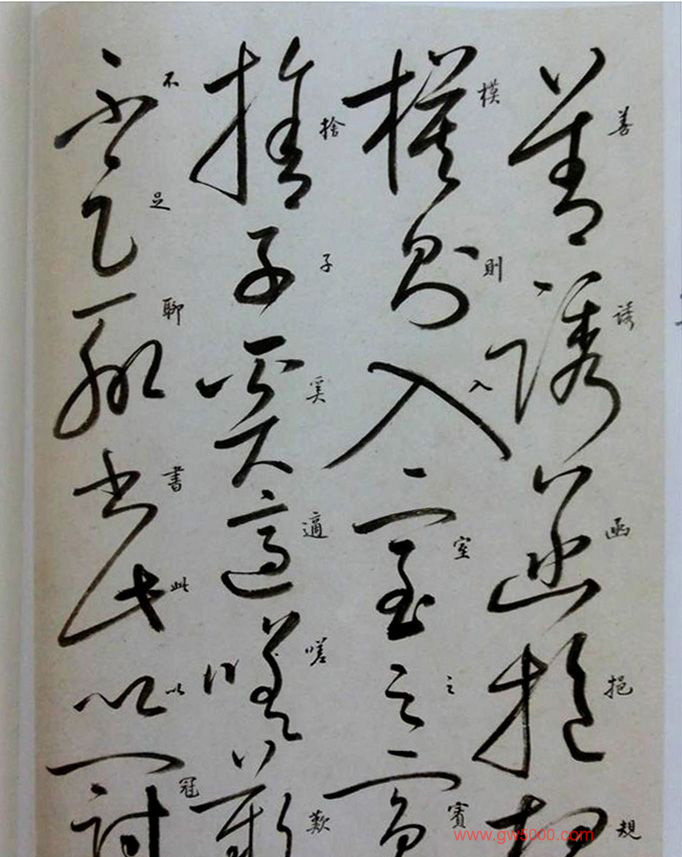 善诱函挹規
模則入室之賓
捨子奚適嗟歎
不足聊書此以冠
www.gw5000.com